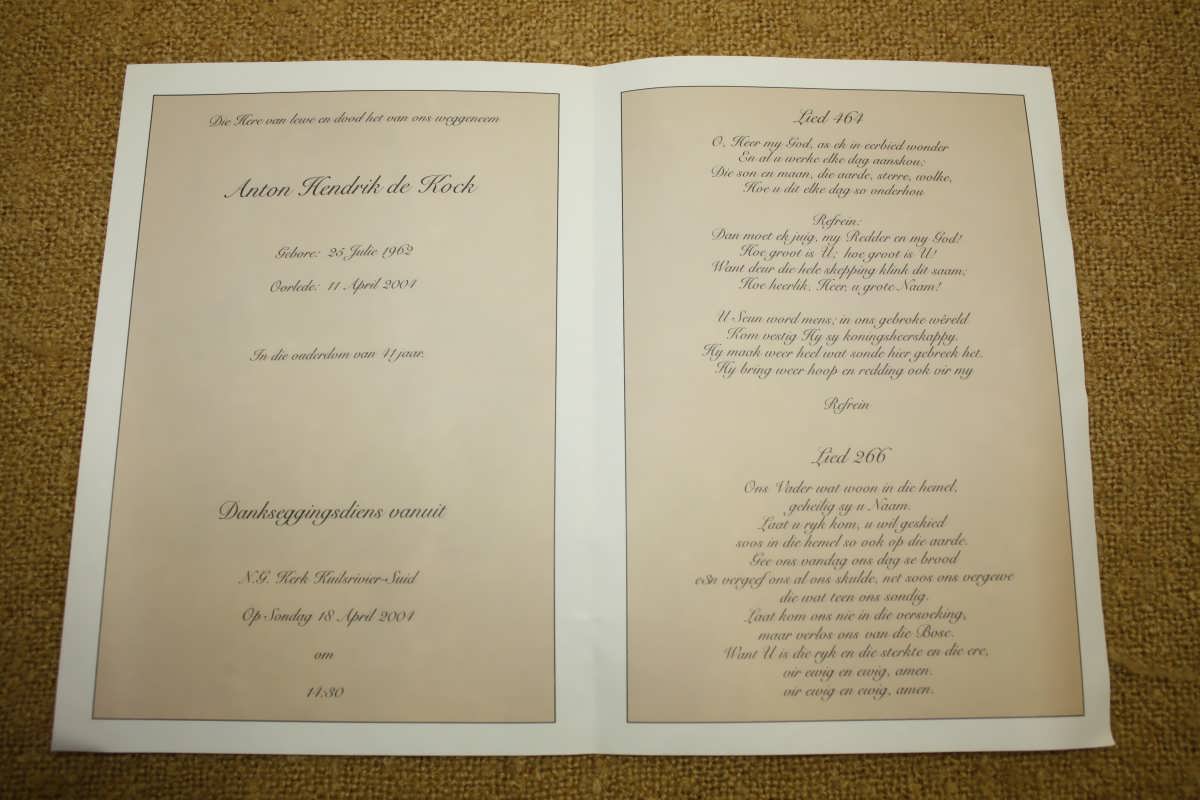 Die Here van lewe en dood het van ons weggeneem
Anton Hendrik de Kock
Gebore: 25 Julie 1962
Oorlede: 11 April 2004
In die ouderdom van 41 jaar.
Dankseggingsdiens vanuit
N.G. Kerk Kuilsrivier-Suid
Op Sondag 18 April 2004
om
14:30
Lied 464
O, Heer my God, as ek in eerbied wonder
En al u werke elke dag aanskou:
Die son en maan, die aarde, sterre, wolke,
Hoe u dit elke dag so onderhou
Refrein:
Dan moet ek juig, my Redder en my God!
Hoe groot is U; hoe groot is U!
Want deur die hele skepping klink dit saam:
Hoe heerlik, Heer, u grote Naam!
U Seun word mens; in ons gebroke wêreld
Kom vestig Hy sy koningsheerskappy.
Hy maak weer heel wat sonde hier gebreek het.
Hy bring weer hoop en redding ook vir my
Refrein
Lied 266
Ons Vader wat woon in die hemel,
geheilig sy u Naam.
Laat u ryk kom, u wil geskied
soos in die hemel so ook op die aarde.
Gee ons vandag ons dag se brood
eSn vergeef ons al ons skulde, net soos ons vergewe
die wat teen ons sondig.
Laat kom ons nie in die versoeking,
maar verlos ons van die Bose.
Want U is die ryk en die sterkte en die ere,
vir ewig en ewig, amen.
vir ewig en ewig, amen.